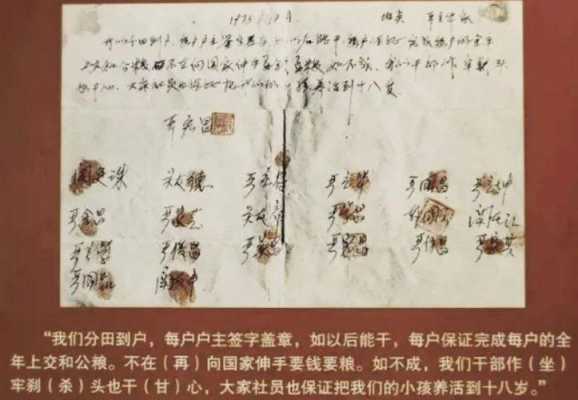 1978年12月 地点 严立华家
我们分田到户 每户户主签字盖章 如以后能干 每户保证完成每户的全年
上交和公粮 不在向国家伸手要钱要粮 如不成 我们干部作牢刹
头也干心 大家社员也保证把我们的小孩养活到十八岁
严宏昌
关友德 严立符 严立华 严国昌 严立坤
严金昌 严家芝 关友章 严学昌 韩国云 关友江
严立学 严俊昌 严美昌 严付昌 严家其
严国品 关友申
“我们分田到户，每户户主签字盖章，如以后能干，每户保证完成每户的全
年上交和公粮。不在（再）向国家伸手要钱要粮。如不成，我们干部作（坐）
牢刹（杀）头也干（甘）心，大家社员也保证把我们的小孩养活到十八岁。”